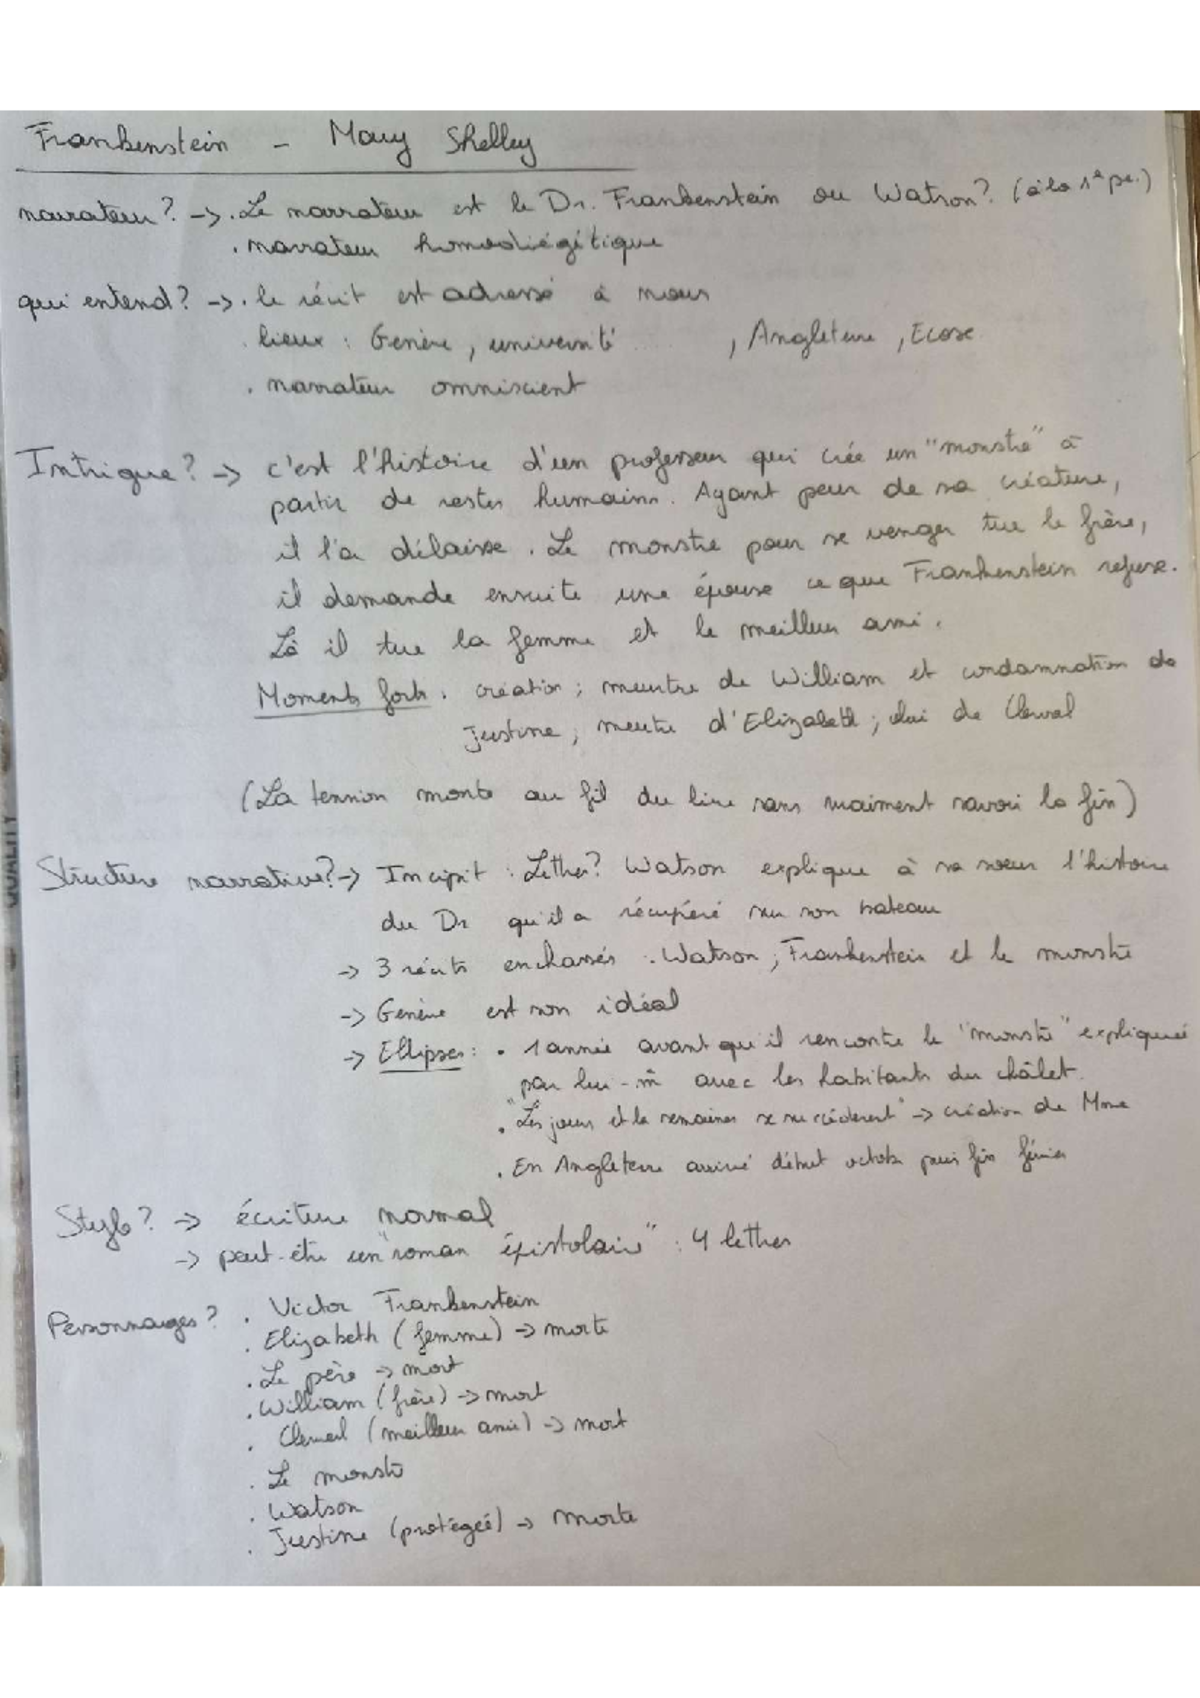 Frankenstein - Mary Shelley
narrateur? -> . Le narrateur est le Dr. Frankenstein ou Watson? (à la 1e pe.)
. narrateur homodiégétique
qui entend? -> . le récit est adressé à nous
. lieux : Genève, université ..... , Angleterre, Ecosse
. narrateur omniscient
Intrigue? -> c'est l'histoire d'un professeur qui crée un "monstre" à
partir de restes humains. Ayant peur de sa créature,
il l'a délaisse. Le monstre pour se venger tue le frère,
il demande ensuite une épouse ce que Frankenstein refuse.
Là il tue la femme et le meilleur ami.
Moments forts : création ; meurtre de William et condamnation de
Justine ; meutre d'Elizabeth ; celui de Clerval
(La tension monte au fil du livre sans vraiment savoir la fin)
Structure narrative? -> Incipit : Letter? Watson explique à sa soeur l'histoire
du Dr qu'il a récupéré sur son bateau
-> 3 récits enchassés : Watson ; Frankenstein et le monstre
-> Genève est son idéal
-> Ellipses : . 1 année avant qu'il rencontre le "monstre" expliquée
par lui-m̂ avec les habitants du châlet.
. "Les jours et le semaines se succédèrent" -> création de Mme
. En Angleterre arrivé début octobre puis fin février
Style? -> écriture normal
-> peut-être un "roman épistolaire" : 4 letters
Personnages? . Victor Frankenstein
. Elizabeth (femme) -> morte
. Le père -> mort
. William (frère) -> mort
. Clerval (meilleur ami) -> mort
. Le monstre
. Watson
. Justine (protégée) -> morte